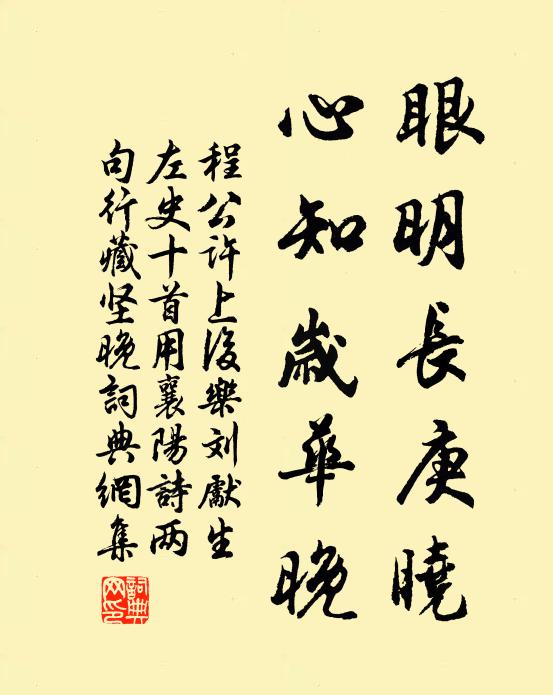 眼明長庚曉
心知歲華晚
程公许上後樂刘獻生
左史十首用襄陽詩两
句行藏坚晚詞典網集
詞典网印